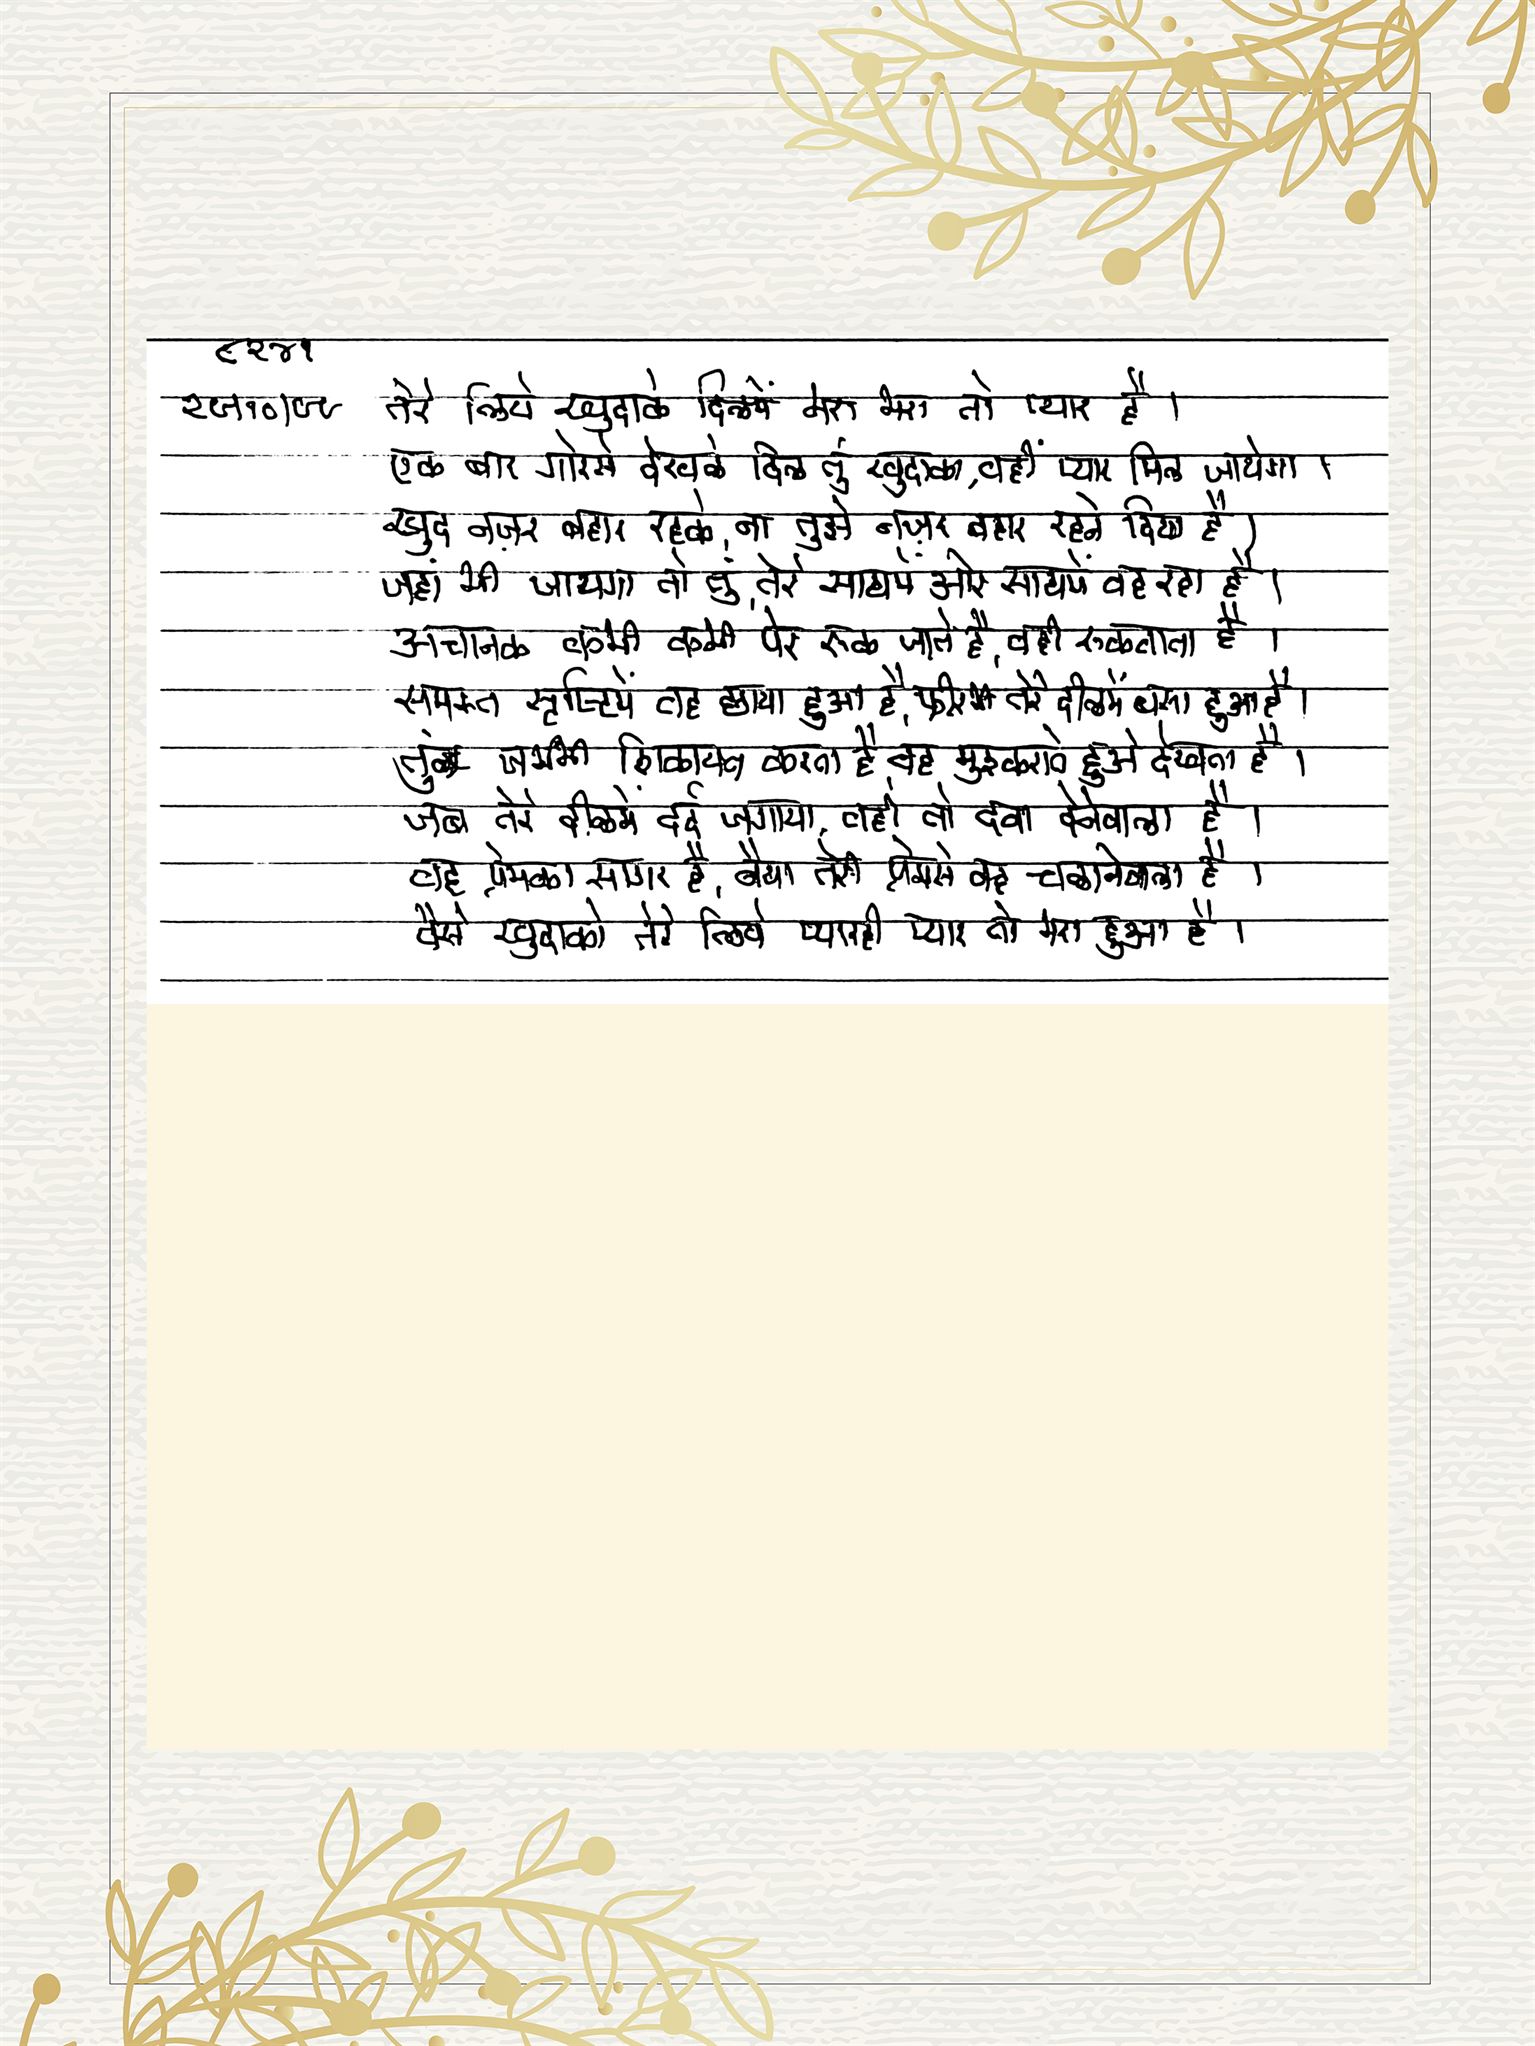 ९२४१
तेरे लिये खुदाके दिलमें भरा भरा तो प्यार है ।
एक बार गोरसे देखले दिल तुं खुदाका, वहीं प्यार मिल जायेगा ।
खुद नज़र बहार रहके, ना तुझे नज़र बहार रहने दिया है ।
जहां भी जायगा तो तुं, तेरे साथमें और साथमें वह रहा है ।
अचानक कभी कभी पेर रुक जाते है, वही रुकवाता है ।
समस्त सृष्टिमें वह छाया हुआ है, फीरभी तेरे दीलमें बसा हुआ है ।
जबभी शिकायत करता है, वह मुश्कराते हुओ देखता है ।
जब तेरे दीलमें दर्द जगाया, वही तो दवा देनेवाला है ।
वह प्रेमका सागर है, नैया तेरी प्रेमसे वह चलानेवाला है ।
वैसे खुदाको तेरे लिये प्यारही प्यार तो भरा हुआ है ।